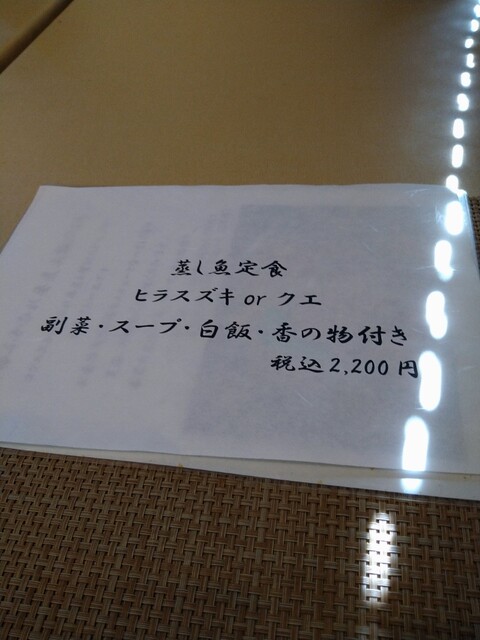 蒸し魚定食
ヒラスズキ or クエ
副菜・スープ・白飯・香の物付き
税込2,200円